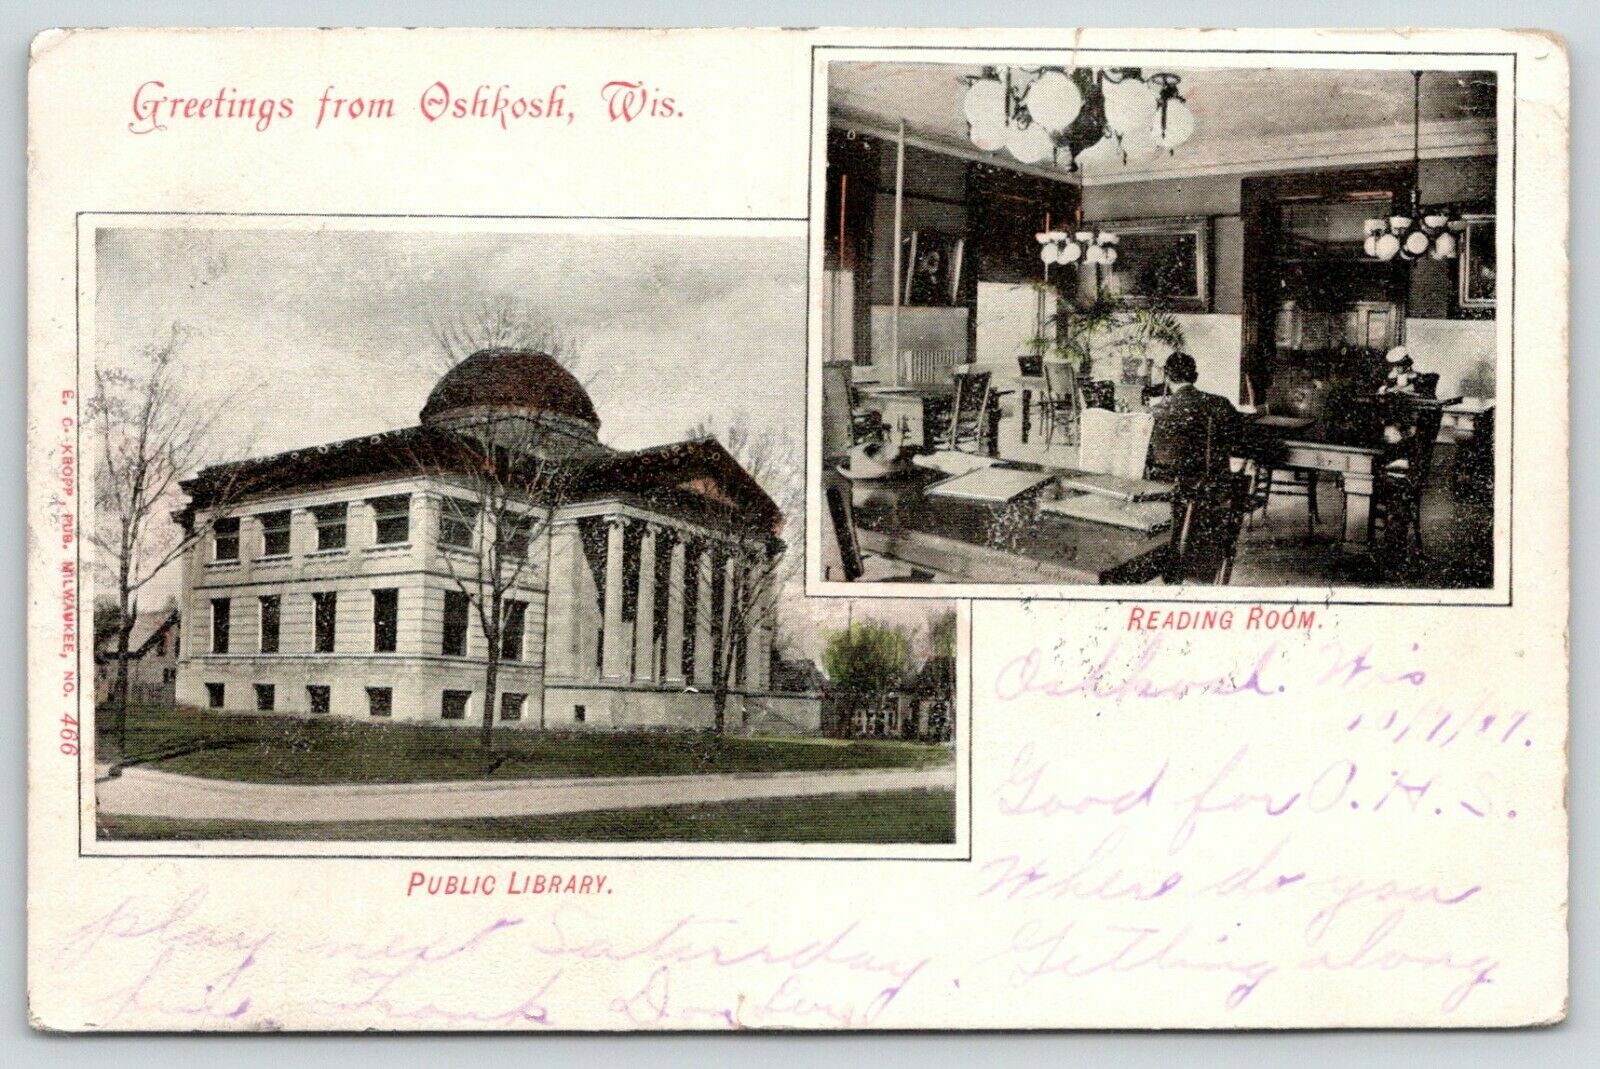 Greetings from Oshkosh, Wis.
READING ROOM.
E. C. KROPP, PUB. MILWAUKEE, NO. 466
PUBLIC LIBRARY.
Oshkosh. Wis
11/7/07.
Good for O. H. S.
Where do you
play next Saturday. Getting along
fine. Frank